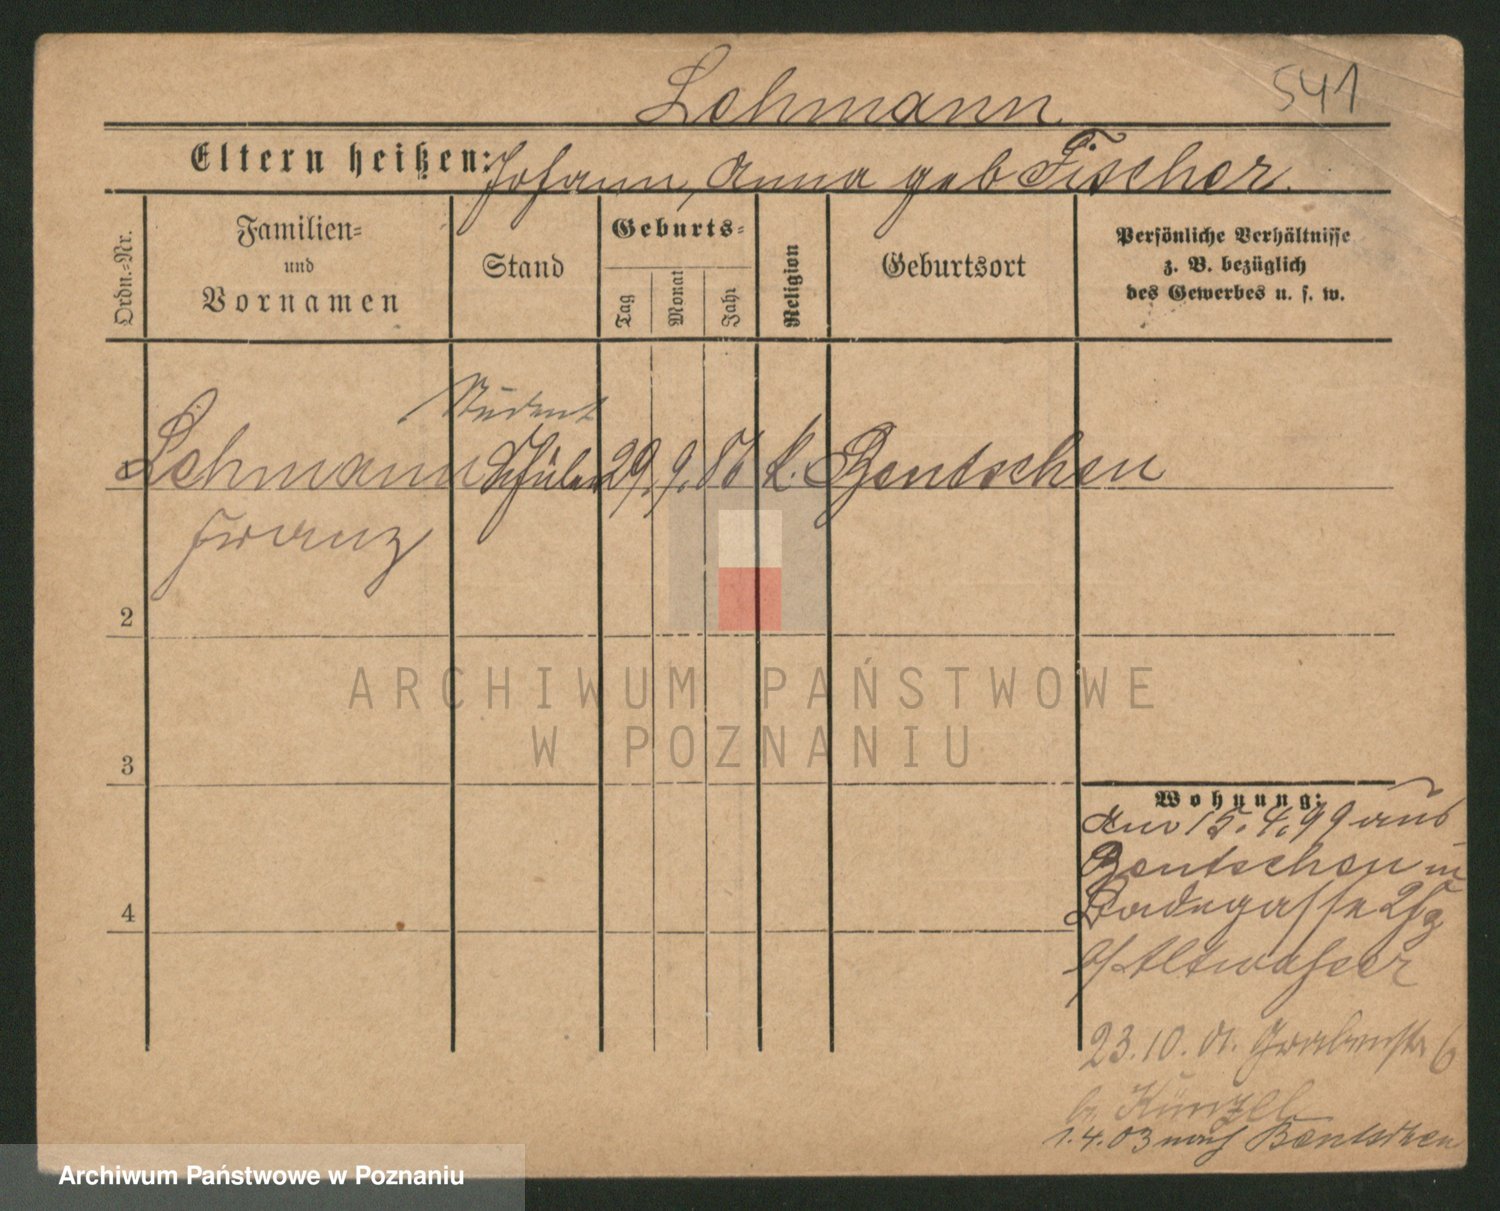 Lehmann
541
Eltern heißen: Johann, Anna geb Fischer.
Ordn.-Nr.
Familien-
und
Vornamen
Stand
Geburts-
Tag
Monat
Jahr
Religion
Geburtsort
Persönliche Verhältnisse
z. B. bezüglich
des Gewerbes u. s. w.
Student
1 Lehmann Schüler 29. 9. 86 k. Bentschen
Franz
2
ARCHIWUM PAŃSTWOWE
W POZNANIU
3
Wohnung:
15.4.99 aus
Bentschen in
Badegasse
b/Altwasser
23.10.01. Grabenstr 6
b. Künzel
1.4.03 nach Bentschen
4
Archiwum Państwowe w Poznaniu